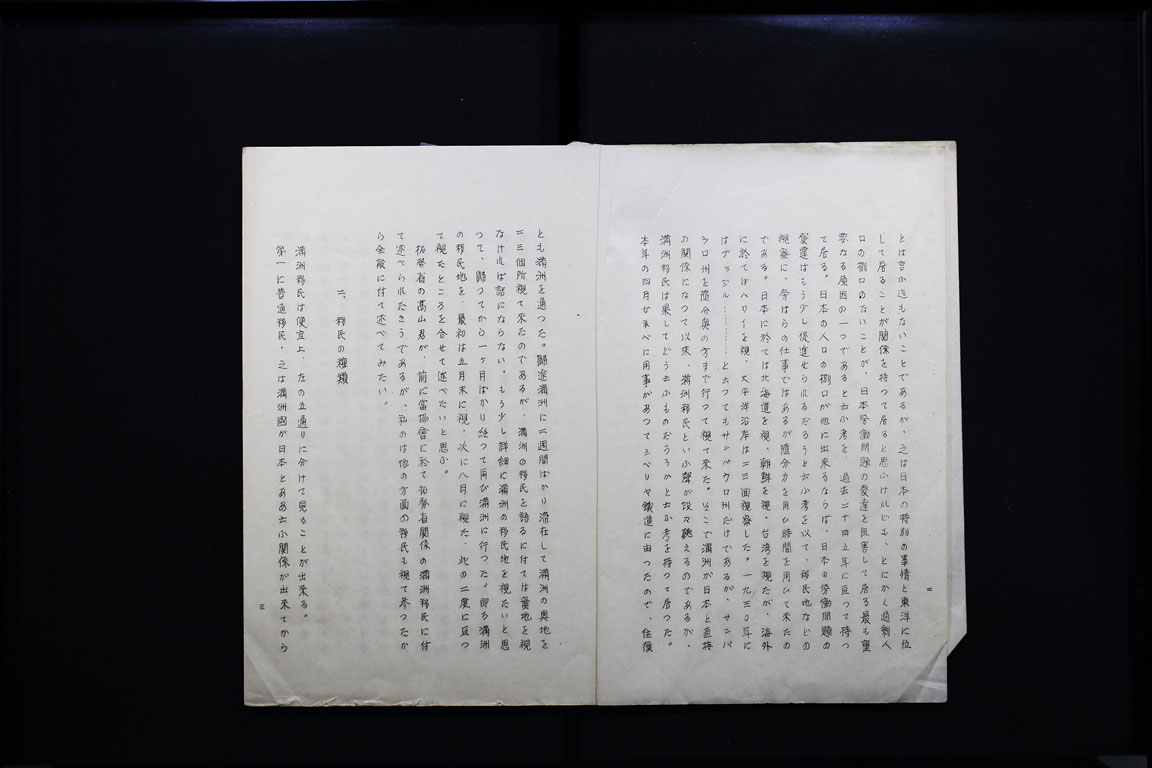 とは言ふ迄もないことであるが、之は日本の特別の事情と東洋に位
して居ることが関係を持つて居ると思ふけれども、とにかく過剰人
口の捌口のないことが、日本労働問題の発達を阻害して居る最も重
要なる原因の一つであると云ふ考を、過去二十四五年に亘つて持つ
て居る。日本の人口の捌口が他に出来るならば、日本の労働問題の
発達はもう少し促進せられるだらうと云ふ考を以て、移民地などの
視察に、傍はらの仕事ではあるが随分力を用ひ時間を用ひて来たの
である。日本に於ては北海道を視、朝鮮を視、台湾を視たが、海外
に於てはハワイを視、太平洋沿岸は二三回視察した。一九三〇年に
はブラジル………と云つてもサンパウロ州だけであるが、サンパ
ウロ州を随分奥の方まで行つて視て来た。そこで満洲が日本と直接
の関係になつて以来、満洲移民といふ声が段々聴えるのであるが、
満洲移民は果してどう云ふものだらうかと云ふ考を持つて居つた。
本年の四月ジュネーヴに用事があつてシベリヤ鉄道に由つたので、往復
二
とも満洲を通つた。帰途満洲に二週間ばかり滞在して満洲の奥地を
二三個所視て来たのであるが、満洲の移民を語るに付ては実地を視
なければ話にならない。もう少し詳細に満洲の移民地を視たいと思
つて、帰つてから一ヶ月ばかり経つて再び満洲に行つた。即ち満洲
の移民地を、最初は五月末に視、次に八月に視た、此の二度に亘つ
て視たところを合せて述べたいと思ふ。
拓務省の高山君が、前に当協會に於て拓務省関係の満洲移民に付
て述べられたさうであるが、私のは他の方面の移民も視て参つたか
ら全般に付て述べてみたい。
二、移民の種類
満洲移民は便宜上、左の五通りに分けて見ることが出来る。
第一に普通移民。之は満洲國が日本とああ云ふ関係が出来てから
三